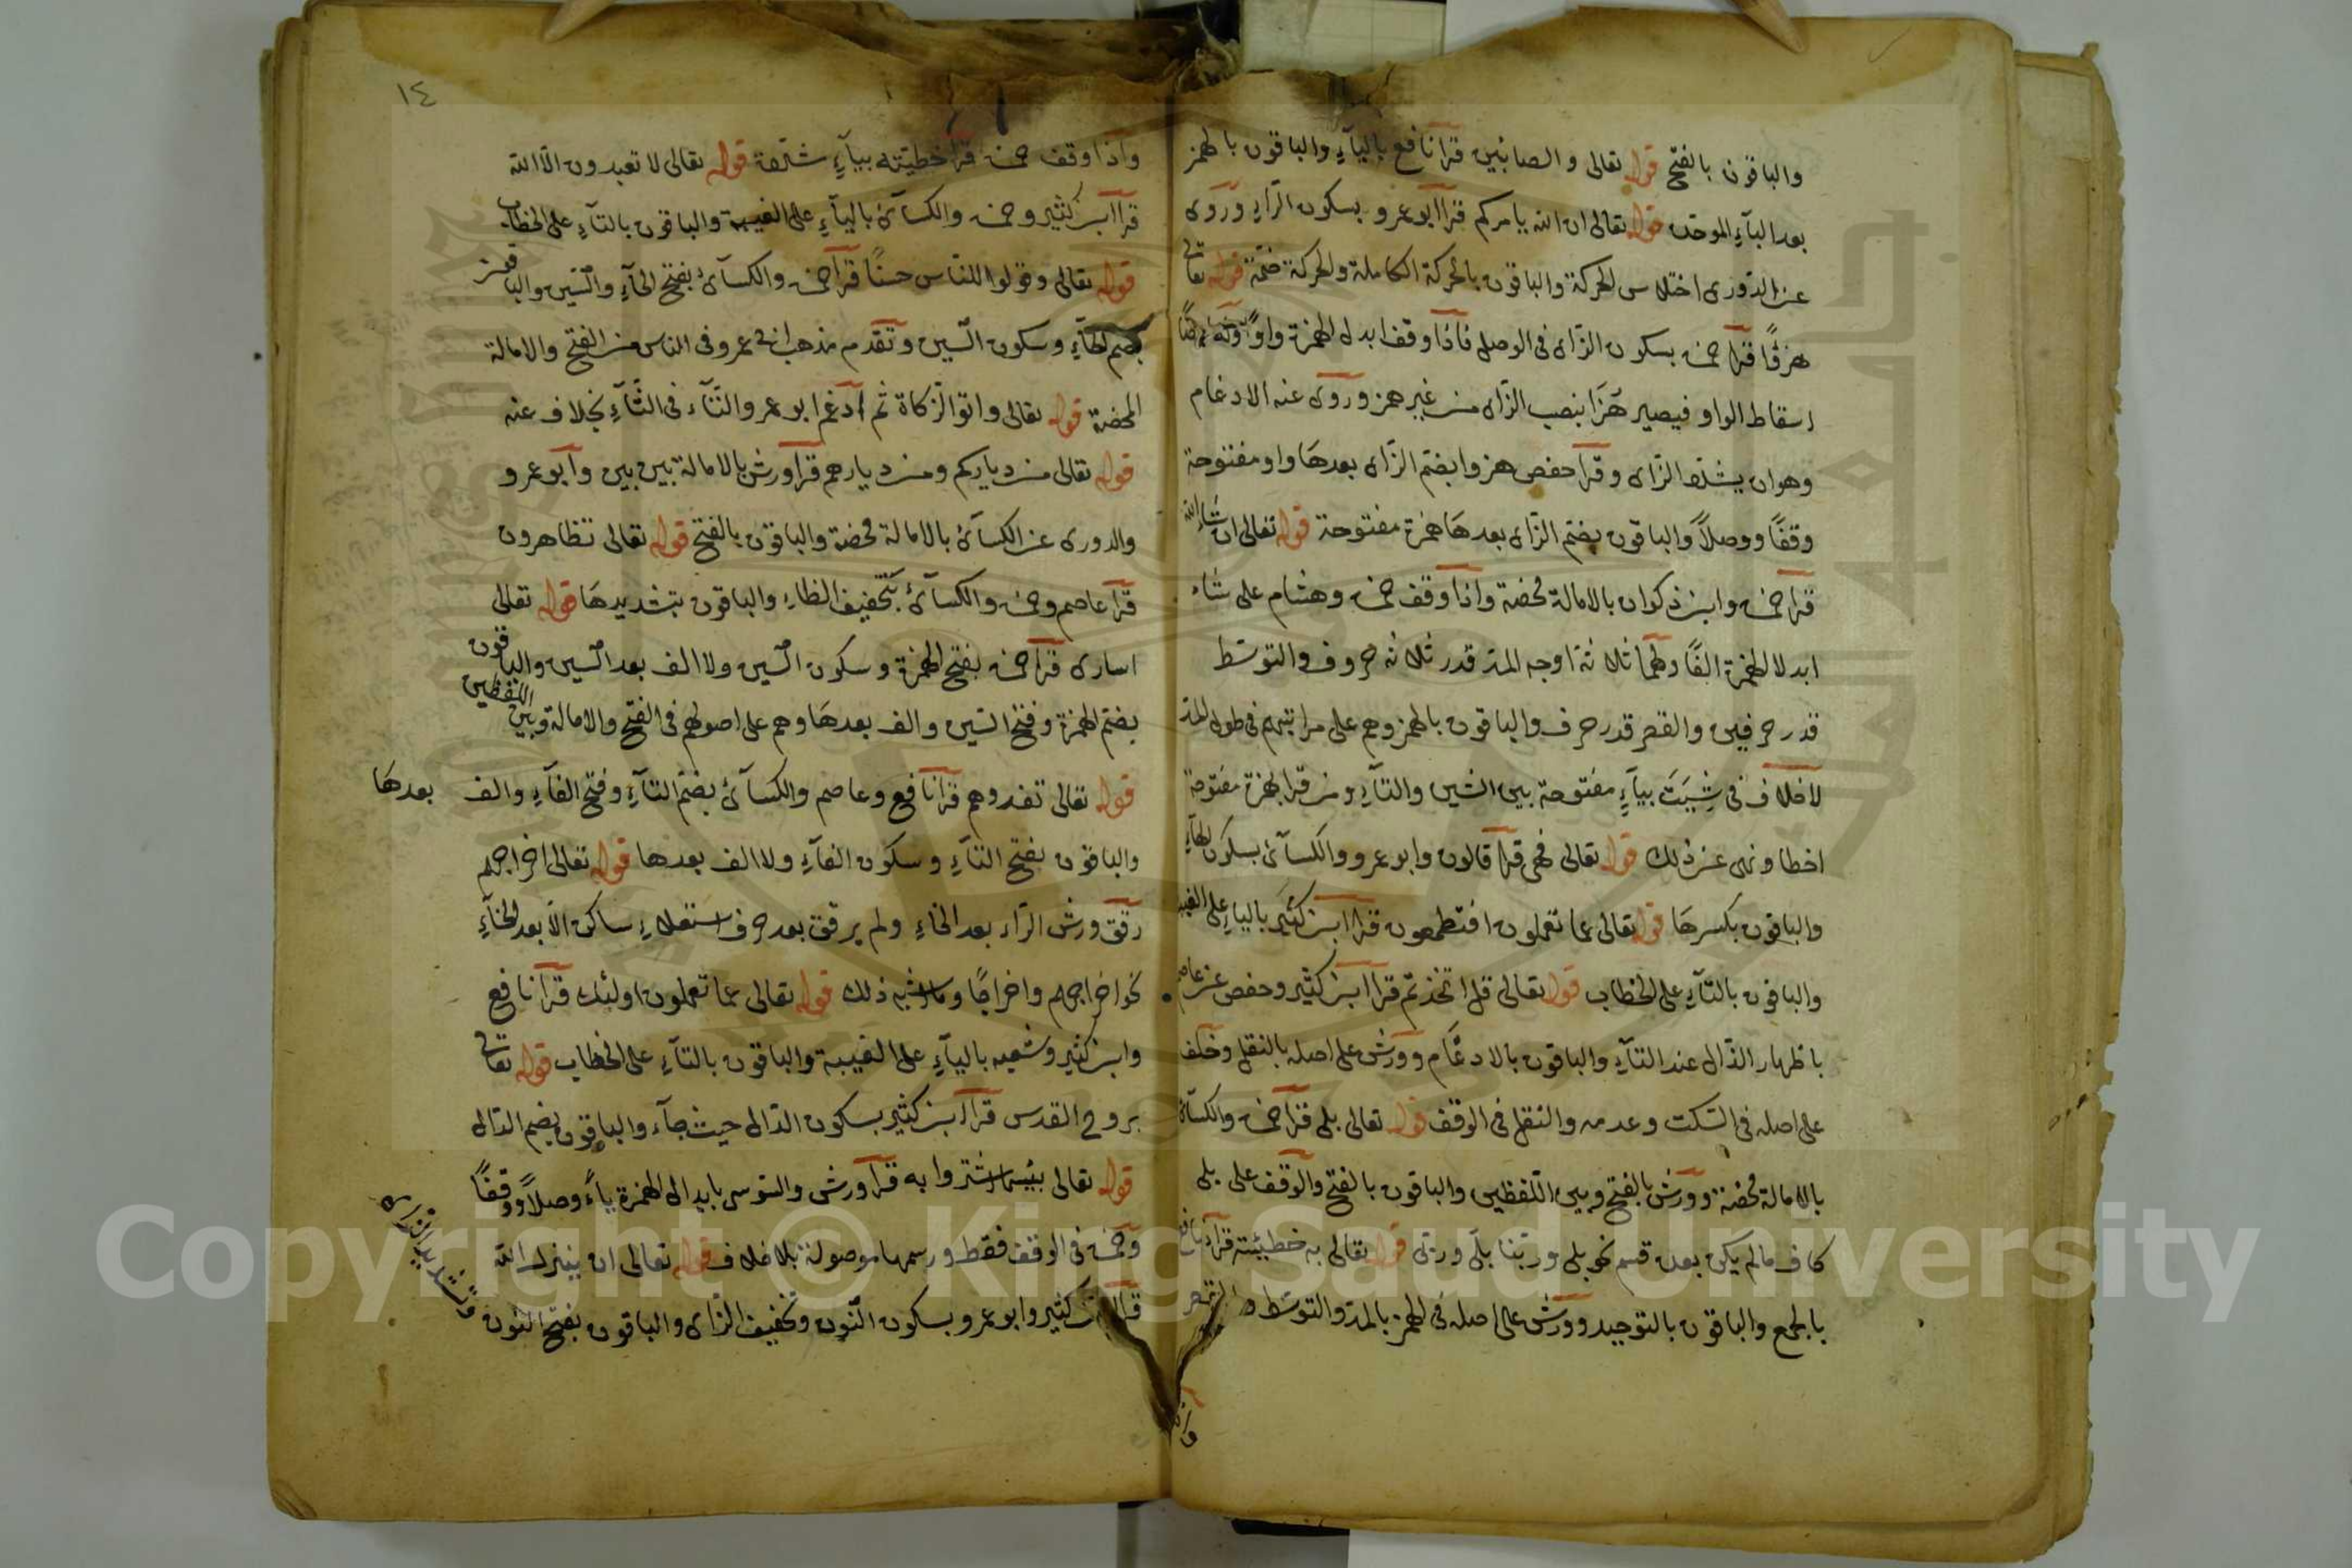 والباقون بالفتح قوله تعالى والصابئين قرا نافع بالياء والباقون بالهمز
بعد الباء الموحدة قوله تعالى ان الله يامركم قرا ابو عمرو بسكون الراء وروى
عن الدورى اختلاس الحركة والباقون بالحركة الكاملة والحركة ضمة قوله تعالى
هزؤًا قرا حمزة بسكون الزاى فى الوصل فاذا وقف ابدل الهمزة واوًا وله
اسقاط الواو فيصير هَزَا بنصب الزاى من غير همز وروى عنه الادغام
وهو ان يشدد الزاى وقرا حفص هزوا بضم الزاى بعدها واو مفتوحة
وقفًا ووصلاً والباقون بضم الزاى بعدها همزة مفتوحة قوله تعالى ان شاء الله
قرا حمزة وابن ذكوان بالامالة محضة واذا وقف حمزة وهشام على شاء
ابدلا الهمزة الفًا ولهما ثلاثة اوجه المد قدر ثلاثة حروف والتوسط
قدر حرفين والقصر قدر حرف والباقون بالهمز وهم على مراتبهم فى طول المد
لا خلاف فى شِيَتَ بياءٍ مفتوحة بين الشين والتاء ومن قرا بهمزة مفتوحة
اخطا ونهى عن ذلك قوله تعالى فهى قرا قالون وابو عمرو والكسائى بسكون الهاء
والباقون بكسرها قوله تعالى عما تعملون افتطمعون قرا ابن كثير بالياء على الغيبة
والباقون بالتاء على الخطاب قوله تعالى قل اتخذتم قرا ابن كثير وحفص عن عاصم
باظهار الذال عند التاء والباقون بالادغام وورش على اصله بالنقل وخلف
على اصله فى السكت وعدمه والنقل فى الوقف قوله تعالى بلى قرا حمزة والكسائى
بالامالة محضة وورش بالفتح وبين اللفظين والباقون بالفتح والوقف على بلى
كاف ما لم يكن بعده قسم نحو بلى وربنا بلى وربى قوله تعالى به خطيئته قرا نافع
بالجمع والباقون بالتوحيد وورش على اصله فى الهمز بالمد والتوسط والقصر
واذا
١٤
واذا وقف حمزة قرا خطيته بياءٍ مشددة قوله تعالى لا تعبدون الا الله
قرا ابن كثير وحمزة والكسائى بالياء على الغيبة والباقون بالتاء على الخطاب
قوله تعالى وقولوا للناس حسنًا قرا حمزة والكسائى بفتح الحاء والسين والباقون
بضم الحاء وسكون السين وتقدم مذهب ابى عمرو فى الناس من الفتح والامالة
المحضة قوله تعالى واتوا الزكاة ثم ادغم ابو عمرو التاء فى الثاء بخلاف عنه
قوله تعالى من دياركم ومن ديارهم قرا ورش بالامالة بين بين وابو عمرو
والدورى عن الكسائى بالامالة محضة والباقون بالفتح قوله تعالى تظاهرون
قرا عاصم وحمزة والكسائى بتخفيف الظاء والباقون بتشديدها قوله تعالى
اسارى قرا حمزة بفتح الهمزة وسكون السين ولا الف بعد السين والباقون
بضم الهمزة وفتح السين والف بعدها وهم على اصولهم فى الفتح والامالة وبين اللفظين
قوله تعالى تفدوهم قرا نافع وعاصم والكسائى بضم التاء وفتح الفاء والف بعدها
والباقون بفتح التاء وسكون الفاء ولا الف بعدها قوله تعالى اخراجهم
رقق ورش الراء بعد الخاء ولم يرقق بعد حرف استعلاء ساكن الا بعد الخاء
نحو اخراجهم واخراجًا وما اشبه ذلك قوله تعالى عما تعملون اولئك قرا نافع
وابن كثير وشعبه بالياء على الغيبة والباقون بالتاء على الخطاب قوله تعالى
بروح القدس قرا ابن كثير بسكون الدال حيث جاء والباقون بضم الدال
قوله تعالى بئسما اشتروا به قرا ورش والسوسى بابدال الهمزة ياءً وصلاً ووقفًا
وحمزة فى الوقف فقط ورسمها موصولة بلا خلاف قوله تعالى ان ينزل الله
قرا ابن كثير وابو عمرو بسكون النون وتخفيف الزاى والباقون بفتح النون
وتشديد الزاى
Copyright © King Saud University